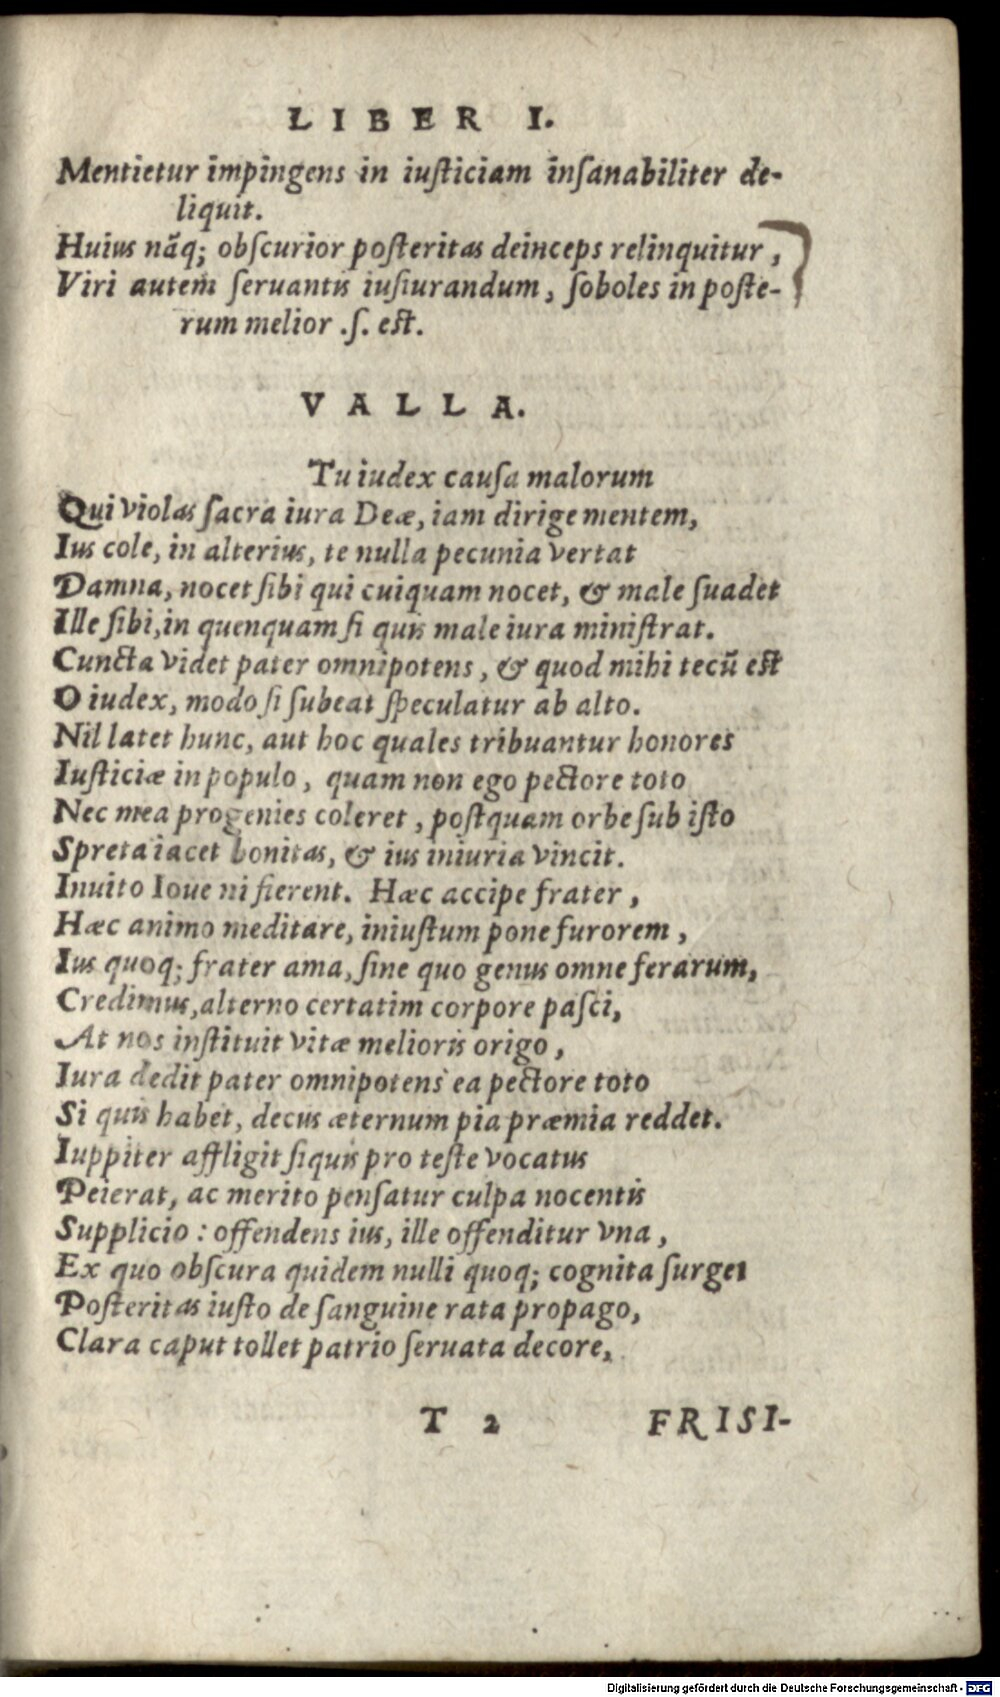 LIBER I.
Mentietur impingens in iusticiam insanabiliter de-
liquit.
Huius nãq; obscurior posteritas deinceps relinquitur,
Viri autem seruantis iusiurandum, soboles in poste-
rum melior .s. est.
VALLA.
Tu iudex causa malorum
Qui violas sacra iura Deæ, iam dirige mentem,
Ius cole, in alterius, te nulla pecunia vertat
Damna, nocet sibi qui cuiquam nocet, & male suadet
Ille sibi, in quenquam si quis male iura ministrat.
Cuncta videt pater omnipotens, & quod mihi tecũ est
O iudex, modo si subeat speculatur ab alto.
Nil latet hunc, aut hoc quales tribuantur honores
Iusticiæ in populo, quam non ego pectore toto
Nec mea progenies coleret, postquam orbe sub isto
Spreta iacet bonitas, & ius iniuria vincit.
Inuito Ioue ni fierent. Hæc accipe frater,
Hæc animo meditare, iniustum pone furorem,
Ius quoq; frater ama, sine quo genus omne ferarum,
Credimus, alterno certatim corpore pasci,
At nos instituit vitæ melioris origo,
Iura dedit pater omnipotens ea pectore toto
Si quis habet, decus æternum pia præmia reddet.
Iuppiter affligit siquis pro teste vocatus
Peierat, ac merito pensatur culpa nocentis
Supplicio: offendens ius, ille offenditur vna,
Ex quo obscura quidem nulli quoq; cognita surget
Posteritas iusto de sanguine rata propago,
Clara caput tollet patrio seruata decore,
T 2 FRISI-
Digitalisierung gefördert durch die Deutsche Forschungsgemeinschaft - DFG